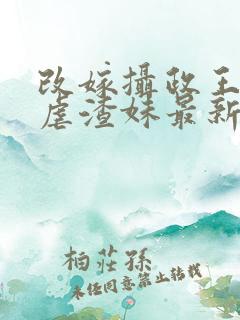 改嫁攝政王
虐渣妹最新
柏莊孫
未經同意禁止转载